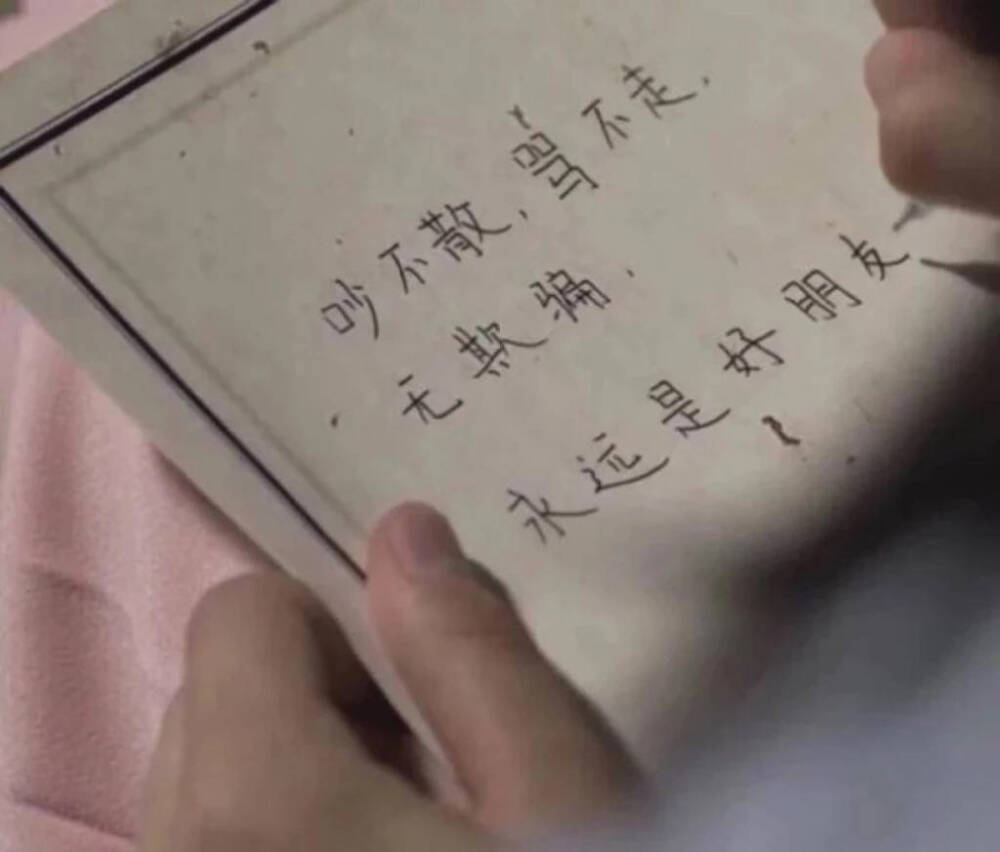 吵不散,骂不走,
无欺骗.
永远是好朋友